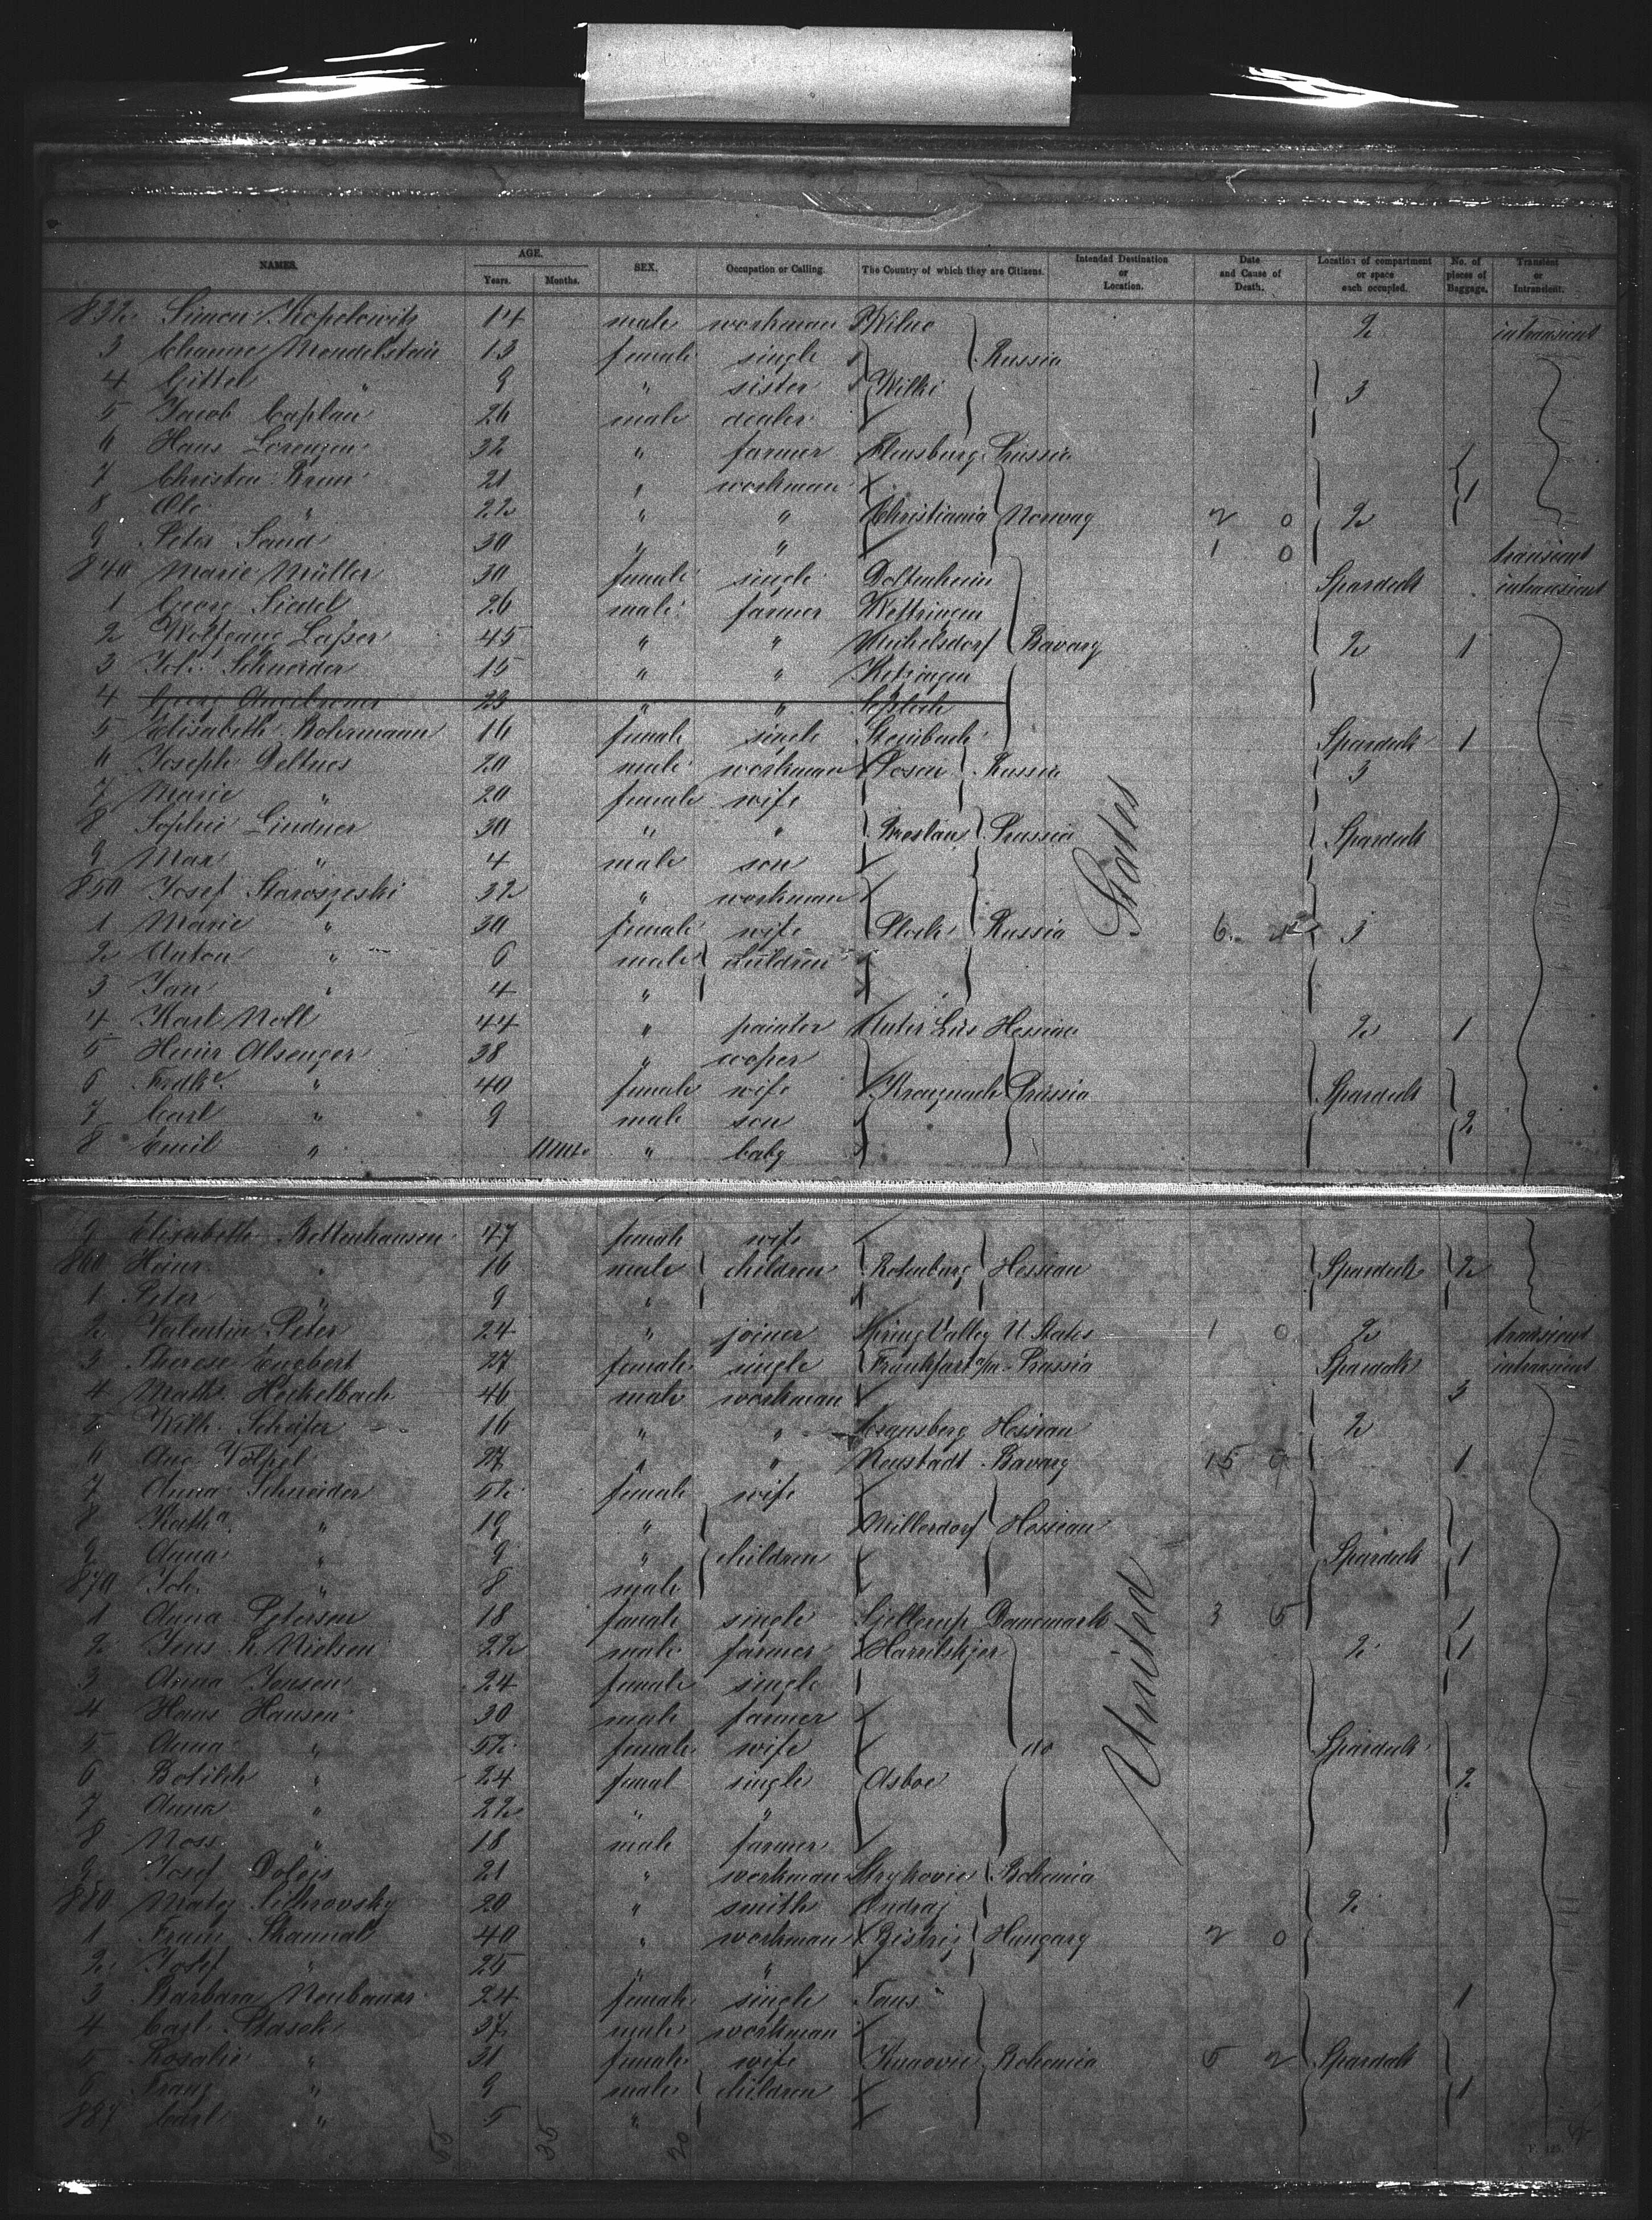 NAMES. AGE. Years. Months. SEX. Occupation or Calling. The Country of which they are Citizens. Intended Destination or Location. Date and Cause of Death. Location of compartment or space each occupied. No. of pieces of Baggage. Transient or Intransient.
832 Simon Kopelowitz 14 male workman Wilno 2 intransient
3 Mendelstein 13 female single Russia
4 Gittel " 9 " sister Wilki 3
5 Jacob Caplan 26 male dealer
6 Hans Lorenzen 32 " farmer Flensburg Prussia
7 Christen Brun 21 " workman 1
8 Ole " 22 " " Christiania Norway 2 0 2
9 Peter Sand 30 " " 1 0 transient
840 Marie Müller 30 female single Spardeck intransient
1 Georg Siedel 26 male farmer Wettringen
2 Wolfgang Laßer 45 " " Michelsdorf Bavary 2 1
3 Joh. Schneider 15 " " Kitzingen
4 Georg 23 " "
5 Elisabeth Bohrmann 16 female single Steinbach Spardeck 1
6 Joseph Deltnes 20 male workman Posen Russia 3
7 Marie " 20 female wife
8 Sophie Lindner 30 " " Breslau Prussia Spardeck
9 Max " 4 male son
850 Josef Staroszeski 32 " workman
1 Marie " 30 female wife Plock Russia 6 3
2 Anton " 6 male children
3 Jan " 4 "
4 Karl Noll 44 " painter Hessian 2 1
5 Heinr Alsenger 38 " cooper
6 Fredke " 40 female wife Kreuznach Prussia Spardeck
7 Carl " 9 male son 2
8 Emil " 11 mts " baby
9 Elisabeth Bettenhausen 47 female wife
860 Heinr " 16 male children Rotenburg Hessian Spardeck 2
1 Peter " 9 "
2 Valentin Peter 24 " joiner Spring Valley U. States 1 0 2 transient
3 Therese Engbert 27 female single Frankfurt a/m Prussia Spardeck intransient
4 Math. Heckelbach 46 male workman 3
5 Wilh. Schäfer 16 " " Cransberg Hessian 2
6 Aug Völpel 27 " " Neustadt Bavary 15 1
7 Anna Schneider 52 female wife
8 Katha " 19 " Millerdorf Hessian
9 Anna " 9 " children Spardeck 1
870 Joh. " 8 male
1 Anna Petersen 18 female single Danemark 3 5 1
2 Jens K. Nielsen 22 male farmer Harrilskjer 2 1
3 Anna Jensen 24 female single
4 Hans Hansen 30 male farmer
5 Anna " 52 female wife do Spardeck
6 Botilde " 24 femal single Asboe 2
7 Anna " 22 " "
8 Noss " 18 male farmer
9 Josef 21 " workman Strykovic Bohemia
880 Matej 20 " smith Ondraj 2
1 Franz 40 " workman Bistriz Hungary 2 0
2 Josef " 25 " "
3 Barbara Neubauer 24 female single Taus 1
4 Carl 37 male workman
5 Rosalie " 31 female wife Bohemia 5 2 Spardeck
6 Franz " 9 male children 1
887 Carl " 5 "
United States
55 35 20